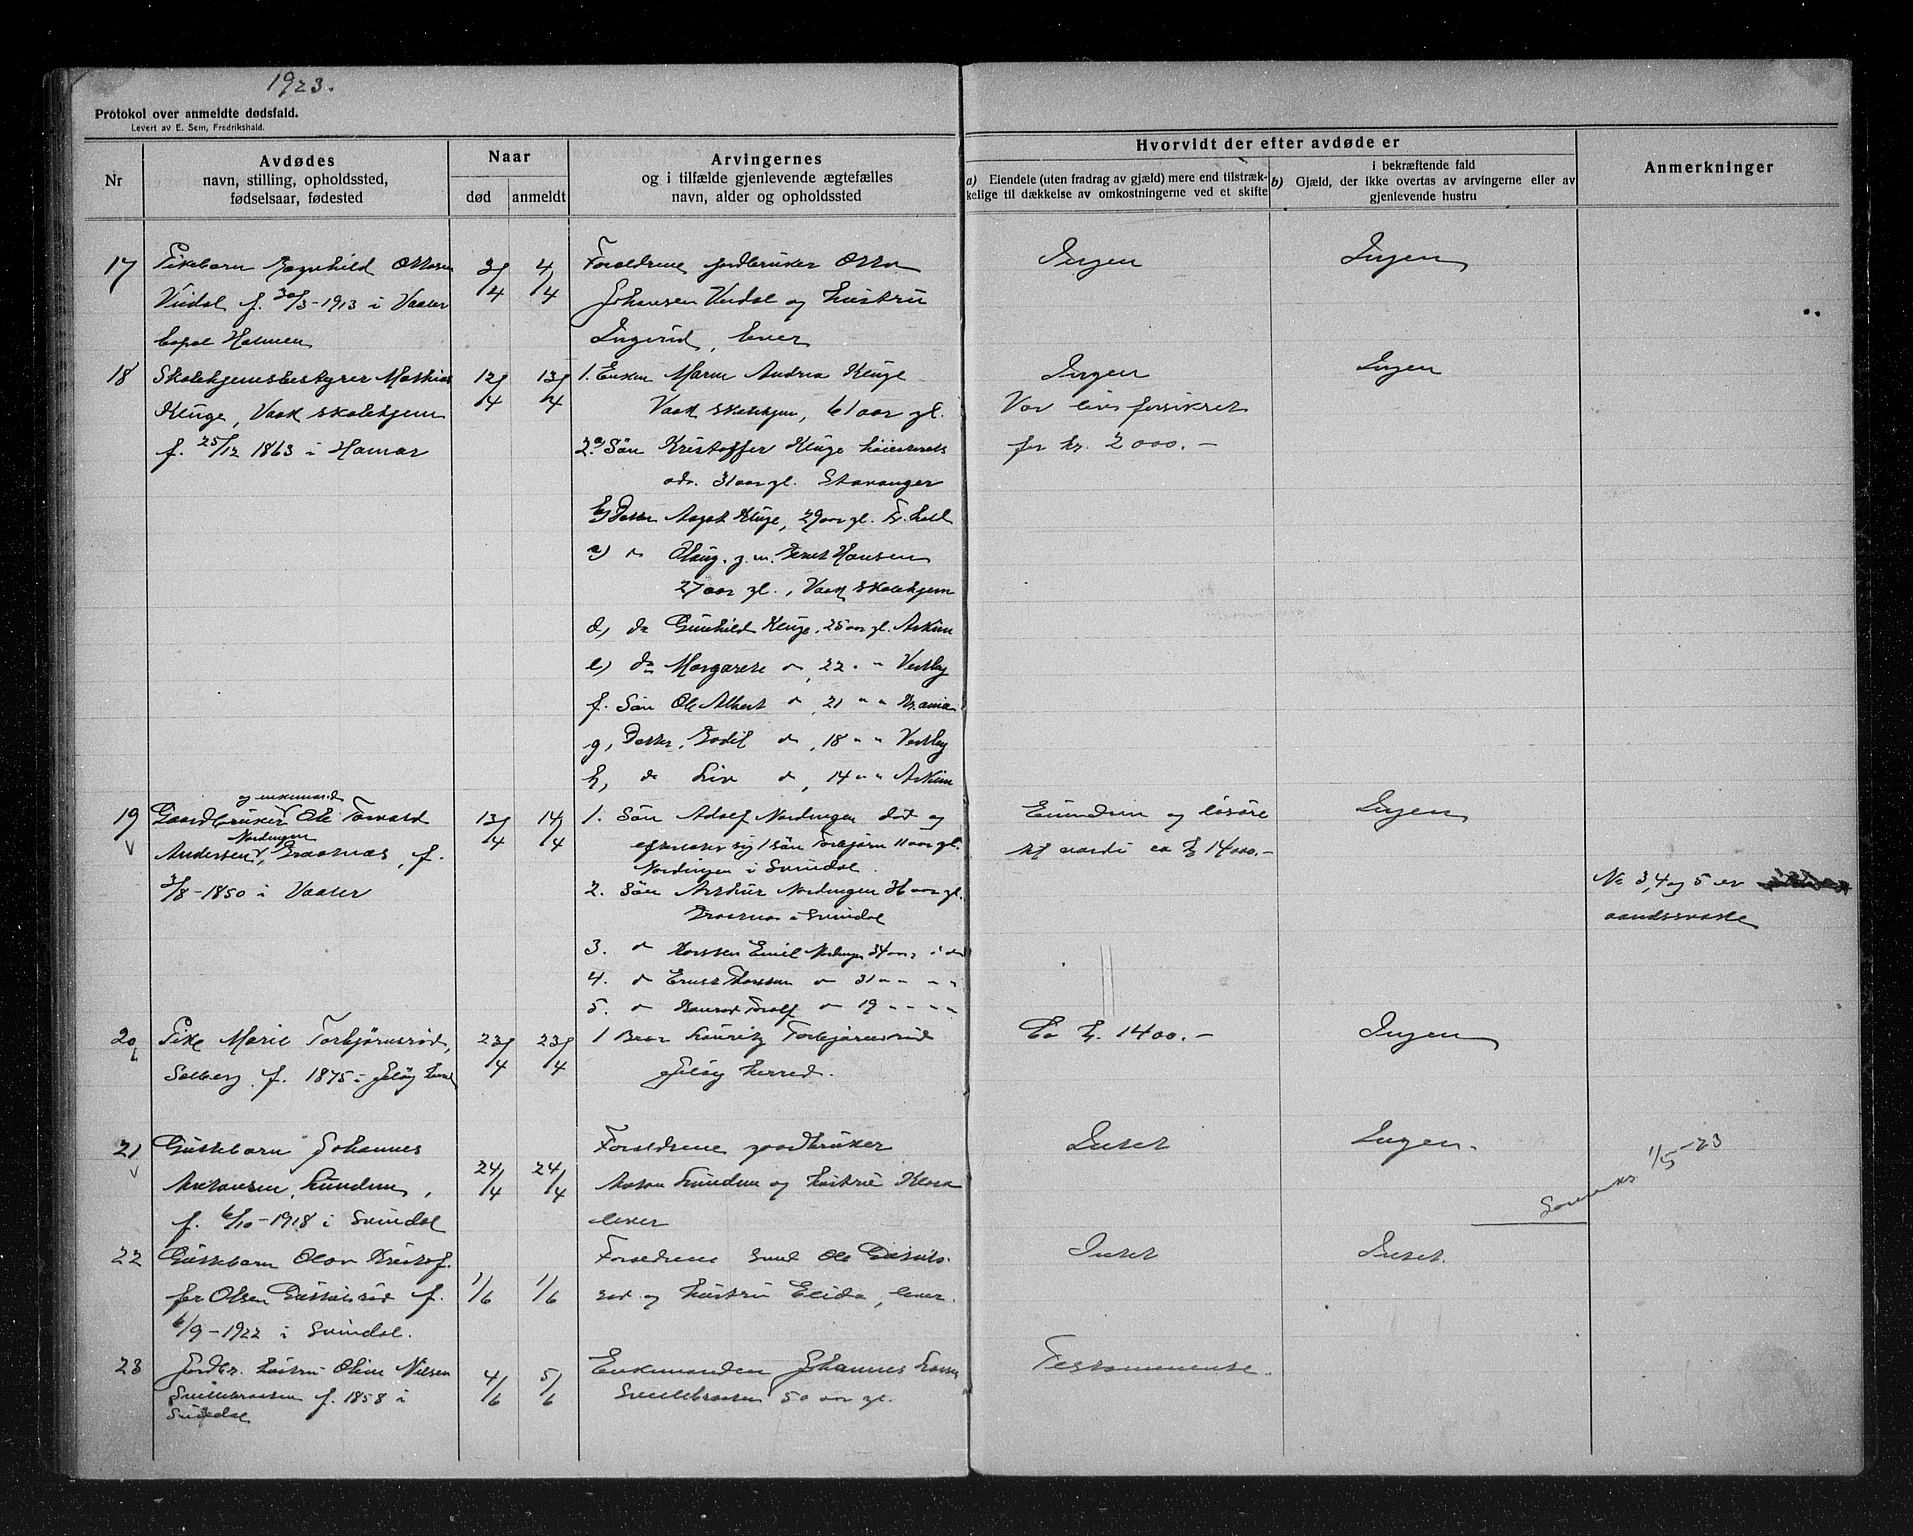 1923.
Protokol over anmeldte dødsfald.
Levert av E. Sem, Fredrikshald.
Nr
Avdødes
navn, stilling, opholdssted,
fødselsaar, fødested
Naar
død
anmeldt
Arvingernes
og i tilfælde gjenlevende ægtefælles
navn, alder og opholdssted
Hvorvidt der efter avdøde er
a) Eiendele (uten fradrag av gjæld) mere end tilstræk-
kelige til dækkelse av omkostningerne ved et skifte
i bekræftende fald
b) Gjæld, der ikke overtas av arvingerne eller av
gjenlevende hustru
Anmerkninger
17
Pikebarn Ragnhild Ottosen
Vidal f. 30/3-1913 i Vaaler
Holmen
3/4
4/4
Forældrene jordbruker Otto
Johansen Vidal og hustru
Ingerid, lever
Ingen
Ingen
18
Skolehjemsbestyrer Mathias
Kluge, Vaak skolehjem
f. 25/12 1863 i Hamar
12/4
13/4
1. Enken Marie Andrea Kluge
Vaak skolehjem, 61 aar gl.
2.a) Søn Kristoffer Kluge høiesterets
adv. 31 aar gl. Stavanger
b) Datter Aagot Kluge, 29 aar gl. Fr.hald
c) do Olaug g.m. Hansen
27 aar gl., Vaak skolehjem
d, do Gunhild Kluge, 25 aar gl. Askim
e) do Margarete do, 22 " Vestby
f. Søn Ole Albert do, 21 " " Kr.ania
g, Datter, Bodil do, 18 " " Vestby
h, do Liv do, 14 " " Askim
Ingen
Var livsforsikret
for kr. 2000.-
Ingen
19
og enkemand
Gaardbruker Ole Torvald
Nordingen
Andersen, Graanas, f.
3/8-1850 i Vaaler
13/4
14/4
1. Søn Adolf Nordingen død og
efterlater sig 1 søn Torbjørn 11 aar gl.
Nordingen i Svindal.
2. Søn Arthur Nordingen 36 aar gl.
Graanas i Svindal
3. do Emil Nordingen 34 aar i do
4. do Ernst Thorsten do 31 " " "
5. do Konrad Torolf do 19 " " " "
Eiendom og løsøre
til værdi ca kr 14000.-
Ingen
No 3,4 og 5 er
aandssvake
20
Pike Marie Torbjørnsrød,
Solberg f. 1875 i Jeløy herred
23/4
23/4
1 Bror Lauritz Torbjørnsrød
Jeløy herred.
Ca kr. 1400.-
Ingen
21
Guttebarn Johannes
Antonsen, Lunden,
f. 6/10-1918 i Svindal
24/4
24/4
Forældrene gaardbruker
Anton Lunden og hustru Klara
lever
Intet
Ingen.
1/5-23
22
Guttebarn Olav Kristof-
fer Olsen Gustulsrød f.
6/9-1922 i Svindal.
1/6
1/6
Forældrene Smed Ole Gustuls-
rød og hustru Elida, lever.
Intet
Intet.
23
Jordbr. hustru Oline Nilsen
f. 1858 i
Svindal
4/6
5/6
Enkemanden Johannes
50 aar gl.
Testamente.